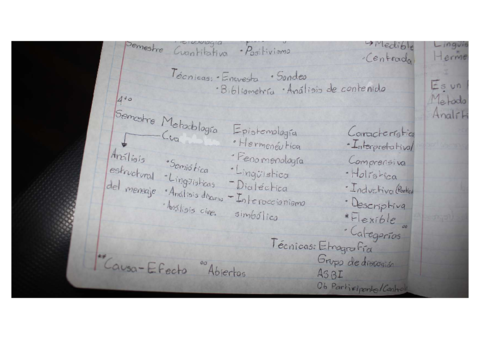 Metodología
Semestre Cuantitativa • Positivismo
→ Medible
• Centrada
Técnicas: • Encuesta • Sondeo
• Bibliometría • Análisis de contenido
4to
Semestre Metodología
Cua
Análisis
estructural
del mensaje
• Semiótica
• Lingüísticas
• Análisis
• Análisis
Epistemología
• Hermenéutica
• Fenomenología
• Lingüística
- Dialéctica
- Interaccionismo
simbólico
Característic
• Interpretativa/
Comprensiva
• Holística
• Inductiva
• Descriptiva
• Flexible
• Categorías **
Técnicas: Etnografía
Grupo de discusión
ASBI
Ob Participante/
** Causa - Efecto ** Abiertas
Lingüis
Herme
Es un
Metodo
Analít